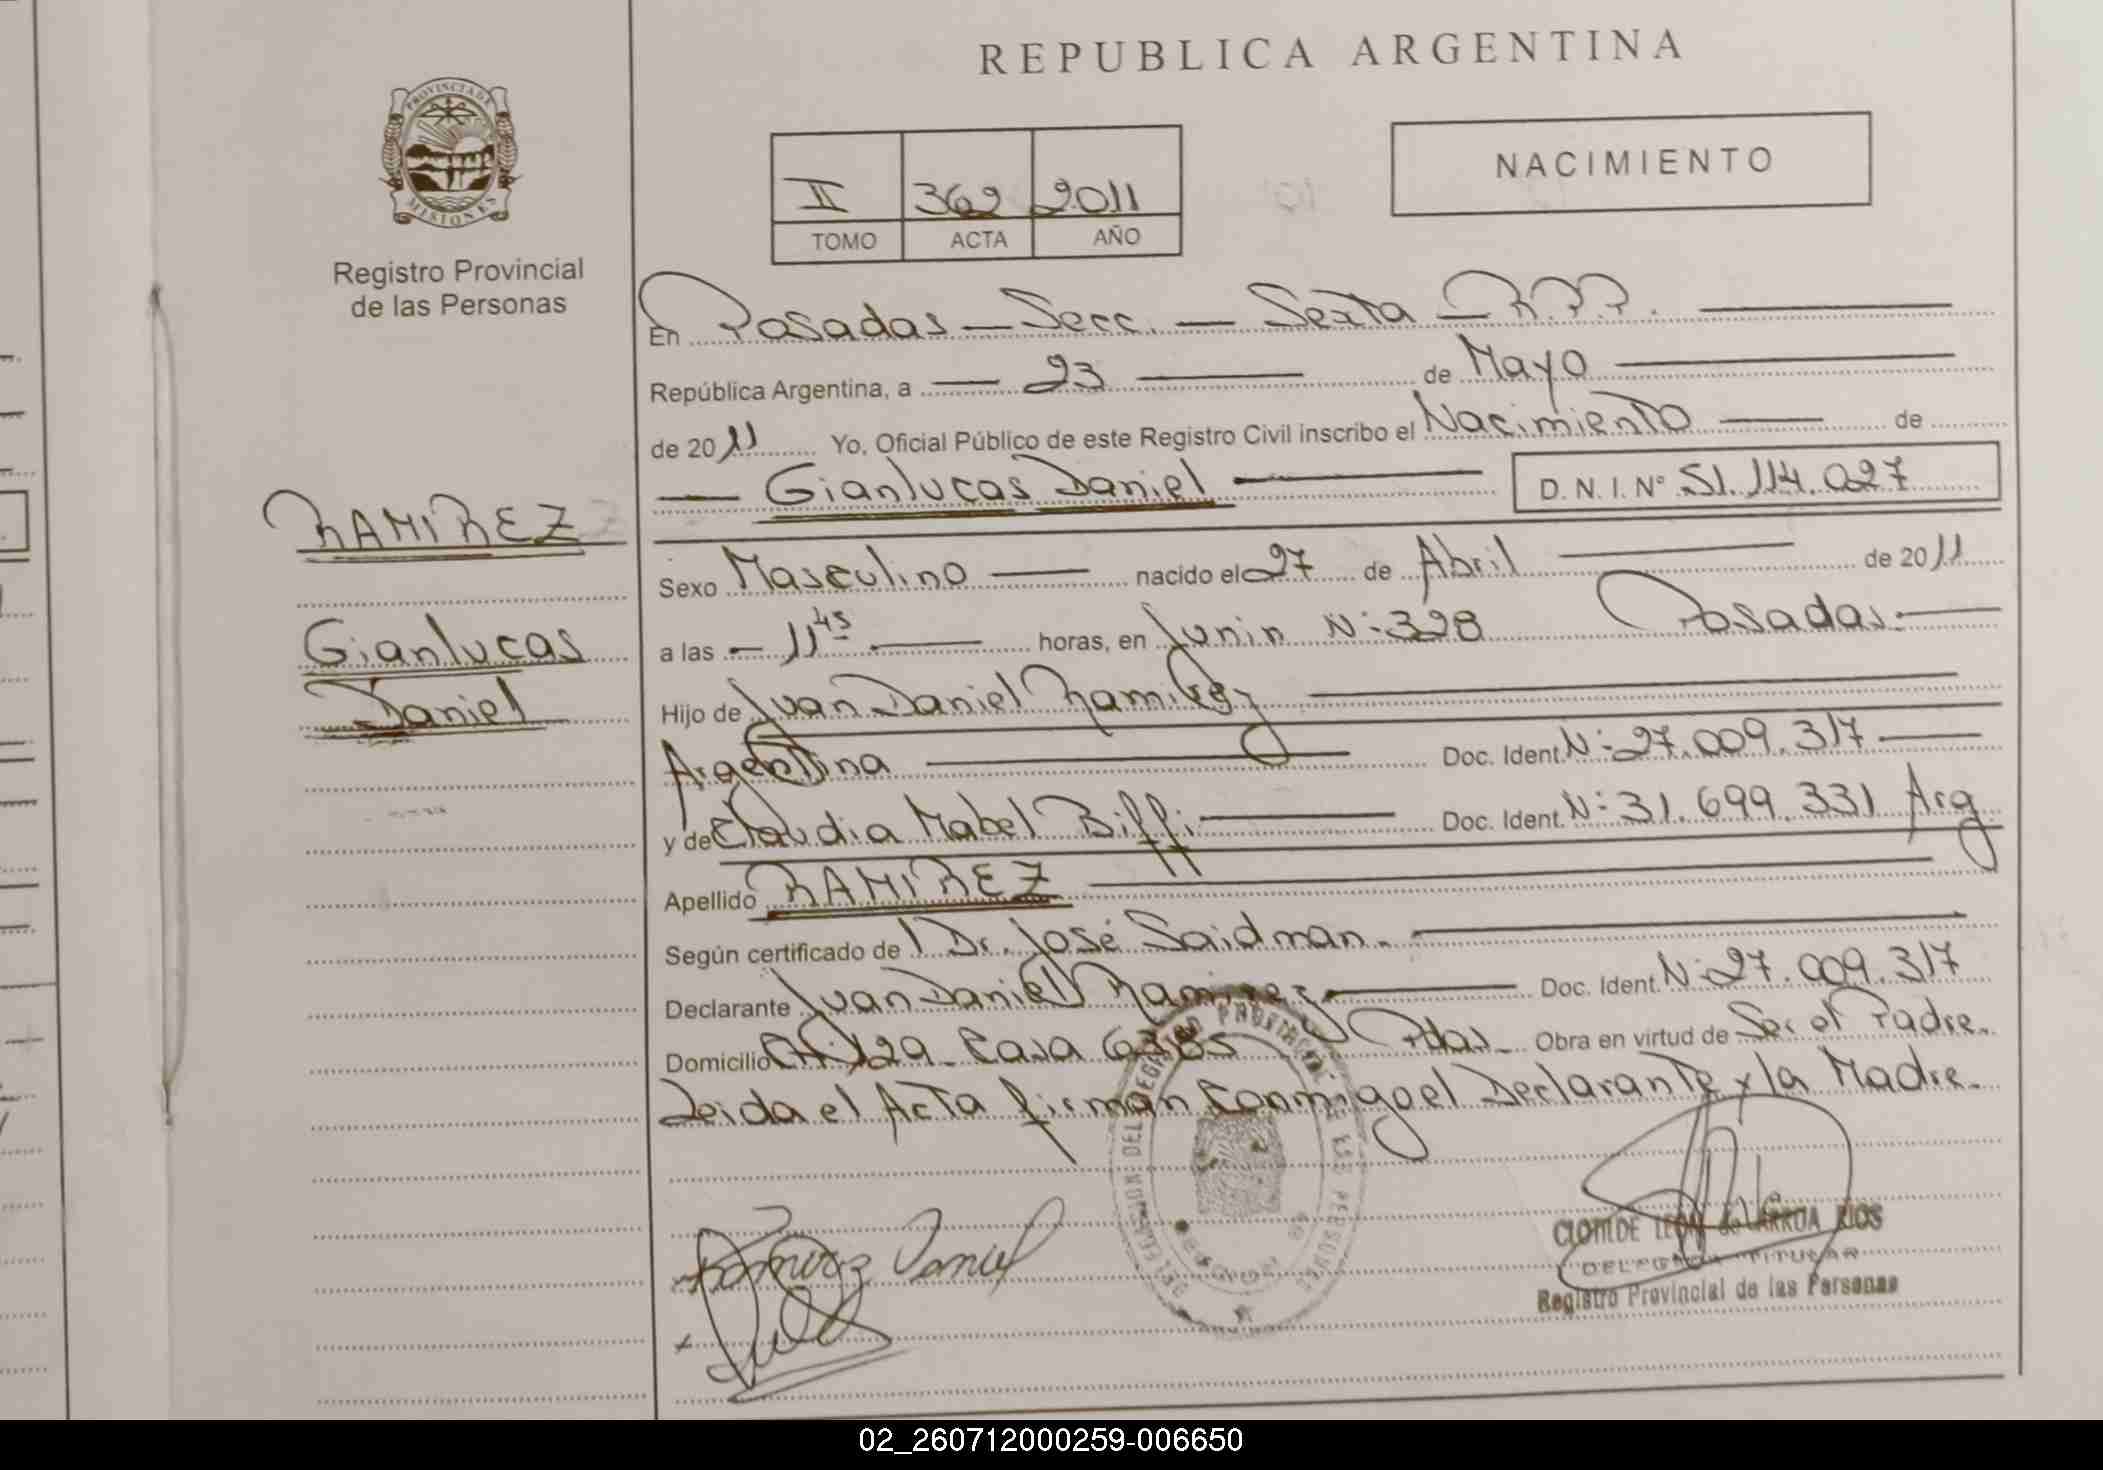 REPUBLICA ARGENTINA
PROVINCIA DE
MISIONES
Registro Provincial
de las Personas
II 362 2011
TOMO ACTA AÑO
NACIMIENTO
En Posadas — Secc. — Sexta R.P.P.
República Argentina, a — 23 — de Mayo
de 2011 Yo, Oficial Público de este Registro Civil inscribo el Nacimiento — de
— Gianlucas Daniel — D. N. I. N° 51.114.027
RAMIREZ
Gianlucas
Daniel
Sexo Masculino — nacido el 27 de Abril — de 2011
a las — 11 45 — horas, en Junin N: 328 Posadas. —
Hijo de Juan Daniel Ramirez —
Argentina — Doc. Ident. N: 27.009.317 —
y de Claudia Mabel Biffi — Doc. Ident. N: 31.699.331 Arg
Apellido RAMIREZ —
Según certificado de Dr. José Saidman. —
Declarante Juan Daniel Ramirez — Doc. Ident. N: 27.009.317
Domicilio Casa Pdas — Obra en virtud de Ser el Padre.
Leida el Acta firman Conmigo el Declarante y la Madre.
Ramirez Daniel
CLOTILDE LEON de LARROA RIOS
DELEGADA TITULAR
Registro Provincial de las Personas
02_260712000259-006650